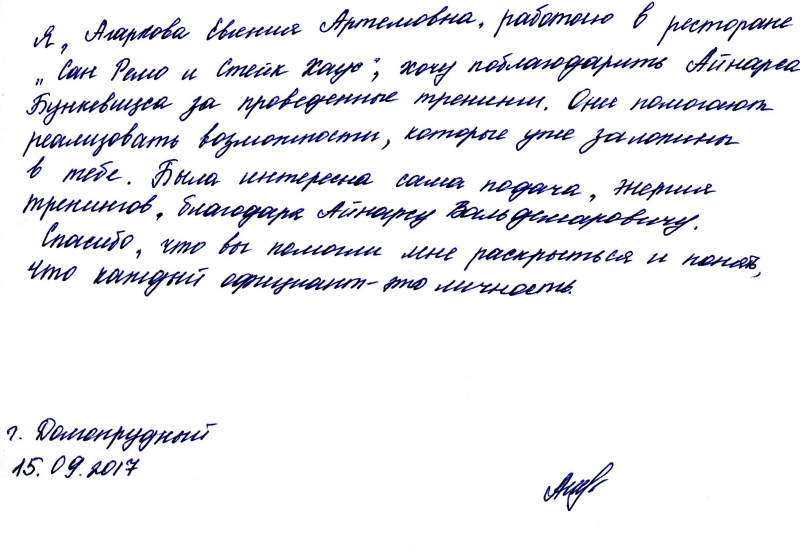 Я, Агаркова Евгения Артемовна, работаю в ресторане
"Сан Ремо и Стейк Хаус", хочу поблагодарить Айнарса
Бункевицса за проведенные тренинги. Они помогают
реализовать возможности, которые уже заложены
в тебе. Была интересна сама подача, энергия
тренингов, благодаря Айнарсу Вальдемаровичу.
Спасибо, что вы помогли мне раскрыться и понять,
что каждый официант - это личность.
г. Долгопрудный
15.09.2017